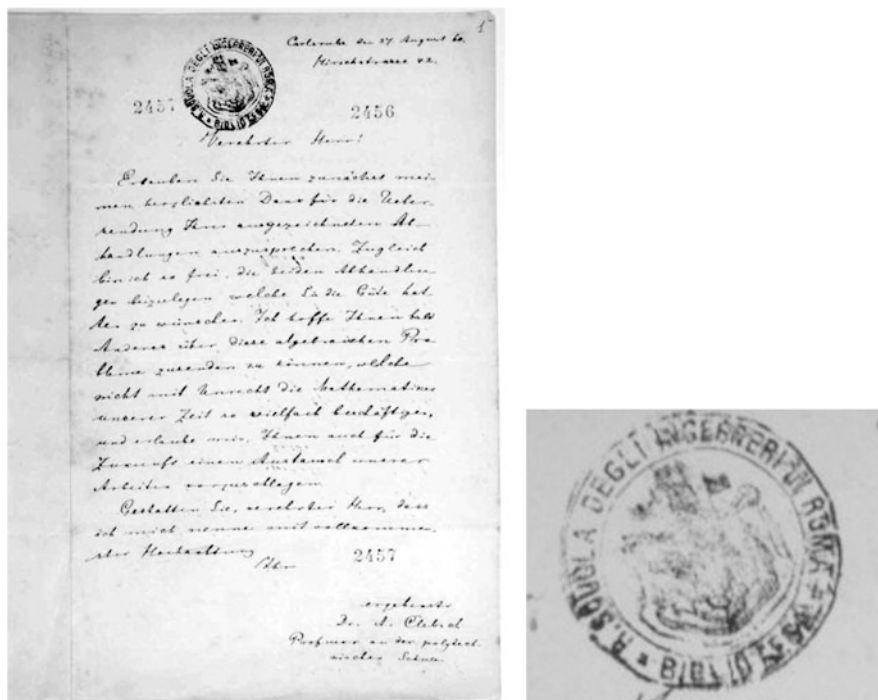 1
Carlsruhe den 27 August 60.
Hirschstrasse 42.
2457 2456
Verehrter Herr!
Erlauben Sie Ihnen zunächst mei-
nen herzlichsten Dank für die Ueber-
sendung Ihrer ausgezeichneten Ab-
handlungen auszusprechen. Zugleich
bin ich so frei, die beiden Abhandlun-
gen beizulegen welche Sie die Güte hat-
ten zu wünschen. Ich hoffe Ihnen bald
Anderes über diese algebraischen Pro-
bleme zusenden zu können, welche
nicht mit Unrecht die Mathematiker
unserer Zeit so vielfach beschäftigen,
und erlaube mir, Ihnen auch für die
Zukunft einen Austausch unserer
Arbeiten vorzuschlagen.
Gestatten Sie, verehrter Herr, dass
ich mich nenne mit vollkommen-
ster Hochachtung
Ihr
2457
ergebenster
Dr. A. Clebsch
Professor an der polytech-
nischen Schule.
R. SCUOLA DEGLI INGEGNERI DI ROMA